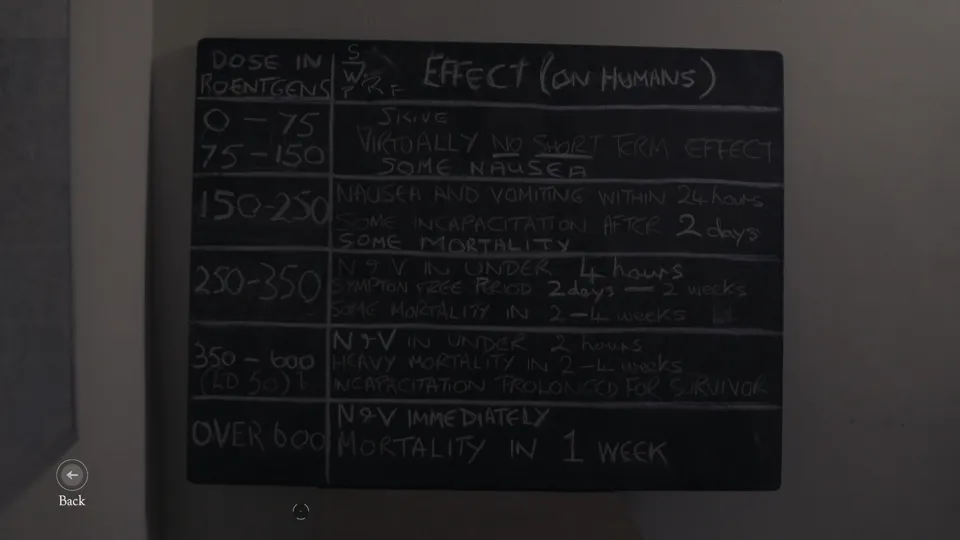 DOSE IN
ROENTGENS
EFFECT (ON HUMANS)
0 - 75
75-150
VIRTUALLY NO SHORT TERM EFFECT
SOME NAUSEA
150-250
NAUSEA AND VOMITING WITHIN 24 hours
SOME INCAPACITATION AFTER 2 days
SOME MORTALITY
250-350
N & V IN UNDER 4 hours
SYMPTON FREE PERIOD 2 days — 2 weeks
SOME MORTALITY IN 2-4 weeks
350 - 600
(LD 50)
N & V IN UNDER 2 hours
HEAVY MORTALITY IN 2-4 weeks
INCAPACITATION PROLONGED FOR SURVIVOR
OVER 600
N & V IMMEDIATELY
MORTALITY IN 1 WEEK
Back